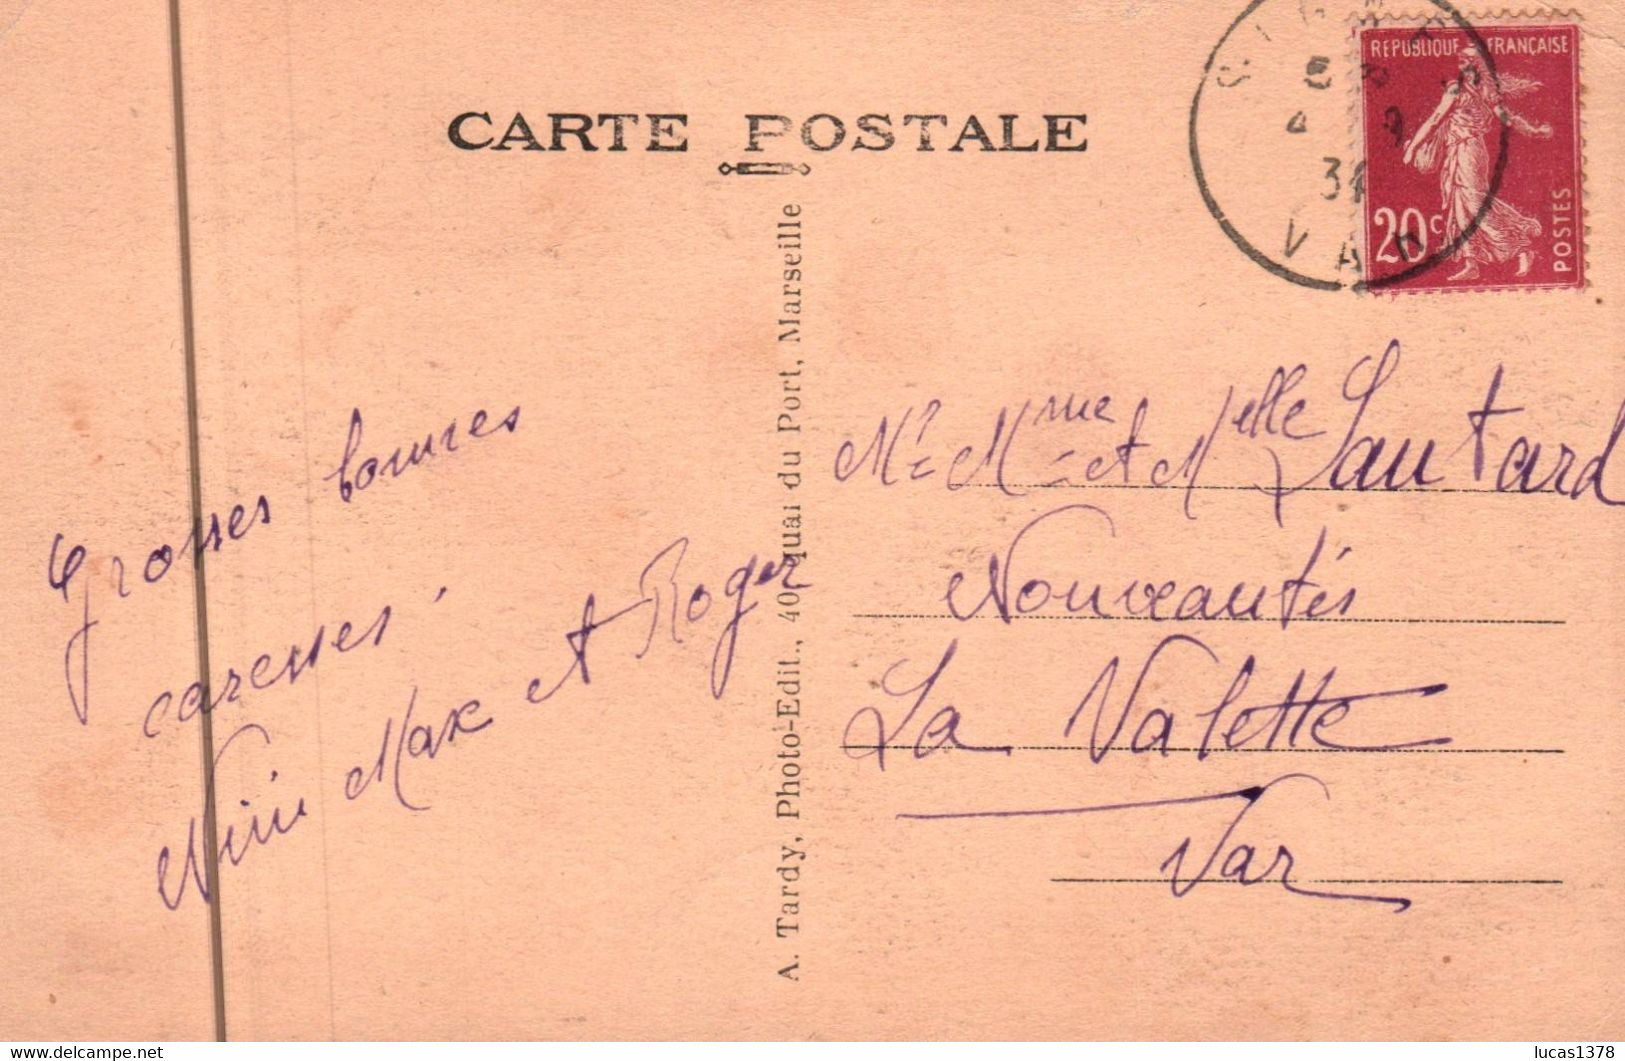 CARTE POSTALE
RÉPUBLIQUE FRANÇAISE
20c
POSTES
SIGNES
4 9
34
VAR
A. Tardy, Photo-Edit., 40, quai du Port, Marseille
Grosses bonnes
caresses.
Nini Max et Roger
Mr Mme et Melle Lautard
Nouveautés
La Valette
Var
delcampe.net
lucas1378